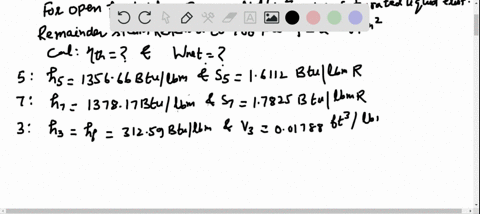 For open
Remainder
Cal: ηth = ? & Wnet = ?
5: h5 = 1356.66 Btu/lbm & S5 = 1.6112 Btu/lbm R
7: h7 = 1378.17 Btu/lbm & S7 = 1.7825 Btu/lbm R
3: h3 = hf = 312.59 Btu/lbm & V3 = 0.01788 ft³/lb